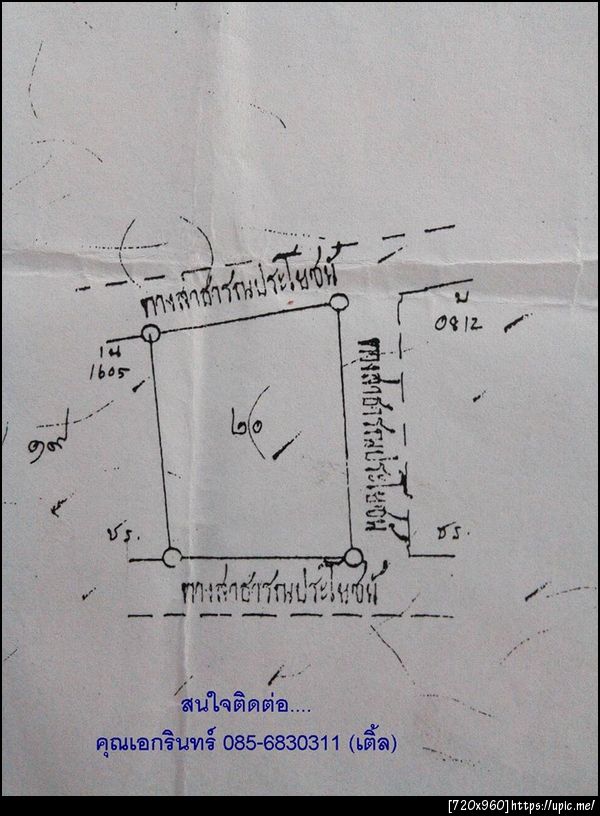 ทางสาธารณประโยชน์
น
1605
บ
0812
ทางสาธารณประโยชน์
๒๐
๑๙
ชร.
ชร.
ทางสาธารณประโยชน์
สนใจติดต่อ....
คุณเอกรินทร์ 085-6830311 (เติ้ล)
[720x960]https://upic.me/